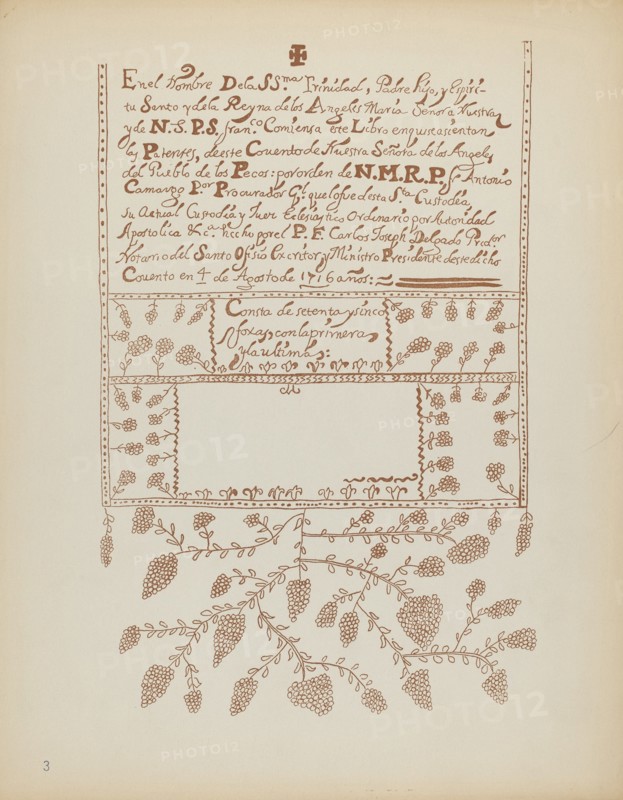 En el Nombre De la SS.ma Trinidad, Padre hijo, y Espiri-
tu Santo y de la Reyna de los Angeles Maria Señora Nuestra
y de N.S.P.S. fran.co Comiensa este Libro en que se asientan
las Patentes, de este Couento de Nuestra Señora de los Angeles
del Pueblo de los Pecos: por orden de N.M.R.P. fr. Antonio
Camargo P.or Procurador G.l que lo fue desta S.ta Custodia,
Su Actual Custodia y Juez Eclesiastico Ordinario por Autoridad
Apostolica &c.a hecho por el P. F. Carlos Joseph Delgado Pred.or
Notario del Santo Ofisio Excritor y Ministro Presidente deste dicho
Couento en 4 de Agosto de 1716 años:
Consta de setenta y sinco
foxas, con la primera
y la ultima:
3
PHOTO12